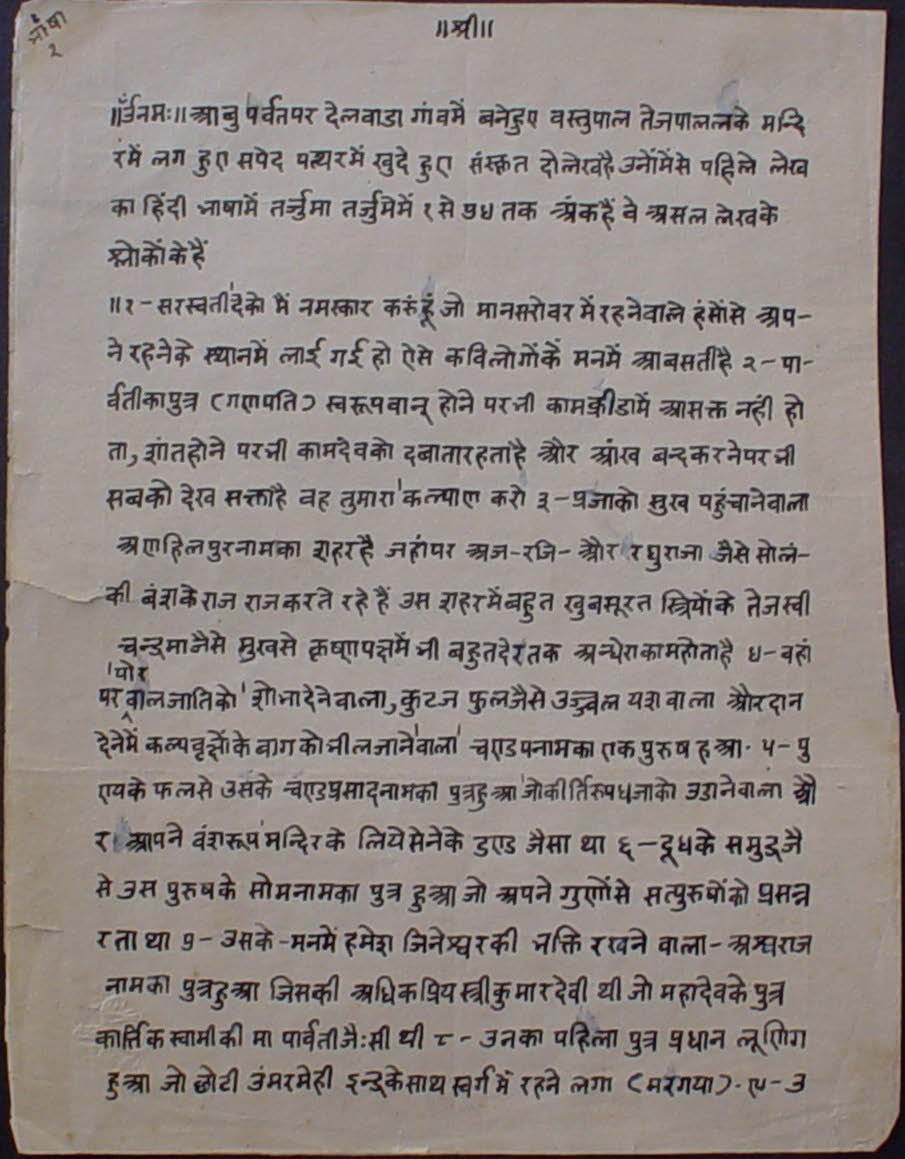 भाषा
२
॥श्री॥
॥ॐनमः॥ आबु पर्वतपर देलवाडा गांवमें बनेहुए वस्तुपाल तेजपालत्नके मन्दि
रमें लग हुए सपेद पत्थरमें खुदे हुए संस्कृत दोलेखहै उनोंमेंसे पहिले लेख
का हिंदी भाषामें तर्जुमा तर्जुमेमें १ से ७४ तक अंकहैं वे असल लेखके
श्लोकोंकेहैं
॥१- सरस्वतीदेको मैं नमस्कार करुंहूं जो मानसरोवर में रहनेवाले हंसोंसे अप-
ने रहनेके स्थानमें लाई गई हो ऐसे कविलोगोंकें मनमें आबसतीहै २- पा-
र्वतीकापुत्र (गणपति) स्वरूपवान् होने परभी कामक्रीडामें आसक्त नहीं हो
ता, शांतहोने परभी कामदेवको दबातारहताहै और आंख बन्दकरनेपरभी
सबको देख सक्ताहै वह तुमारा कल्याण करो ३- प्रजाको सुख पहुंचानेवाला
अणहिलपुरनामका शहरहै जहांपर अज-रजि- और रघुराजा जैसे सोलं-
की बंशकेराज राजकरते रहे हैं उस शहरमेंबहुत खुबसूरत स्त्रियोंके तेजस्वी
चन्द्रमाजैसे मुखसे कृष्णपक्षमें भी बहुतदेरतक अन्धेराकामहोताहै ४- वहां
पोर
पर वालजातिको शोभादेनेवाला, कुटज फुलजैसे उज्ज्वल यशवाला औरदान
देनेमें कल्पवृक्षोंके बागकोभीलजानेवाला चण्डपनामका एक पुरुष हुआ. ५- पु
ण्यके फलसे उसके चण्डप्रसादनामका पुत्रहुआ जोकीर्तिरुपधजाको उडानेवाला औ
र आपने वंशरूप मन्दिरके लियेसेनेके डण्ड जैसा था ६- दूधके समुद्र जै
से उस पुरुषके सोमनामका पुत्र हुआ जो अपने गुणोंसे सत्पुरुषोंको प्रसन्न
रता था ७- उसके -मनमें हमेश जिनेश्वरकी भक्ति रखने वाला- अश्वराज
नामका पुत्रहुआ जिसकी अधिकप्रिय स्त्री कुमारदेवी थी जो महादेवके पुत्र
कार्तिक स्वामीकी मा पार्वतीजैःसी थी ८- उनका पहिला पुत्र प्रधान लूणिग
हुआ जो छोटी उंमरमेही इन्द्रकेसाथ स्वर्गमें रहने लगा (मरगया). ९- उ